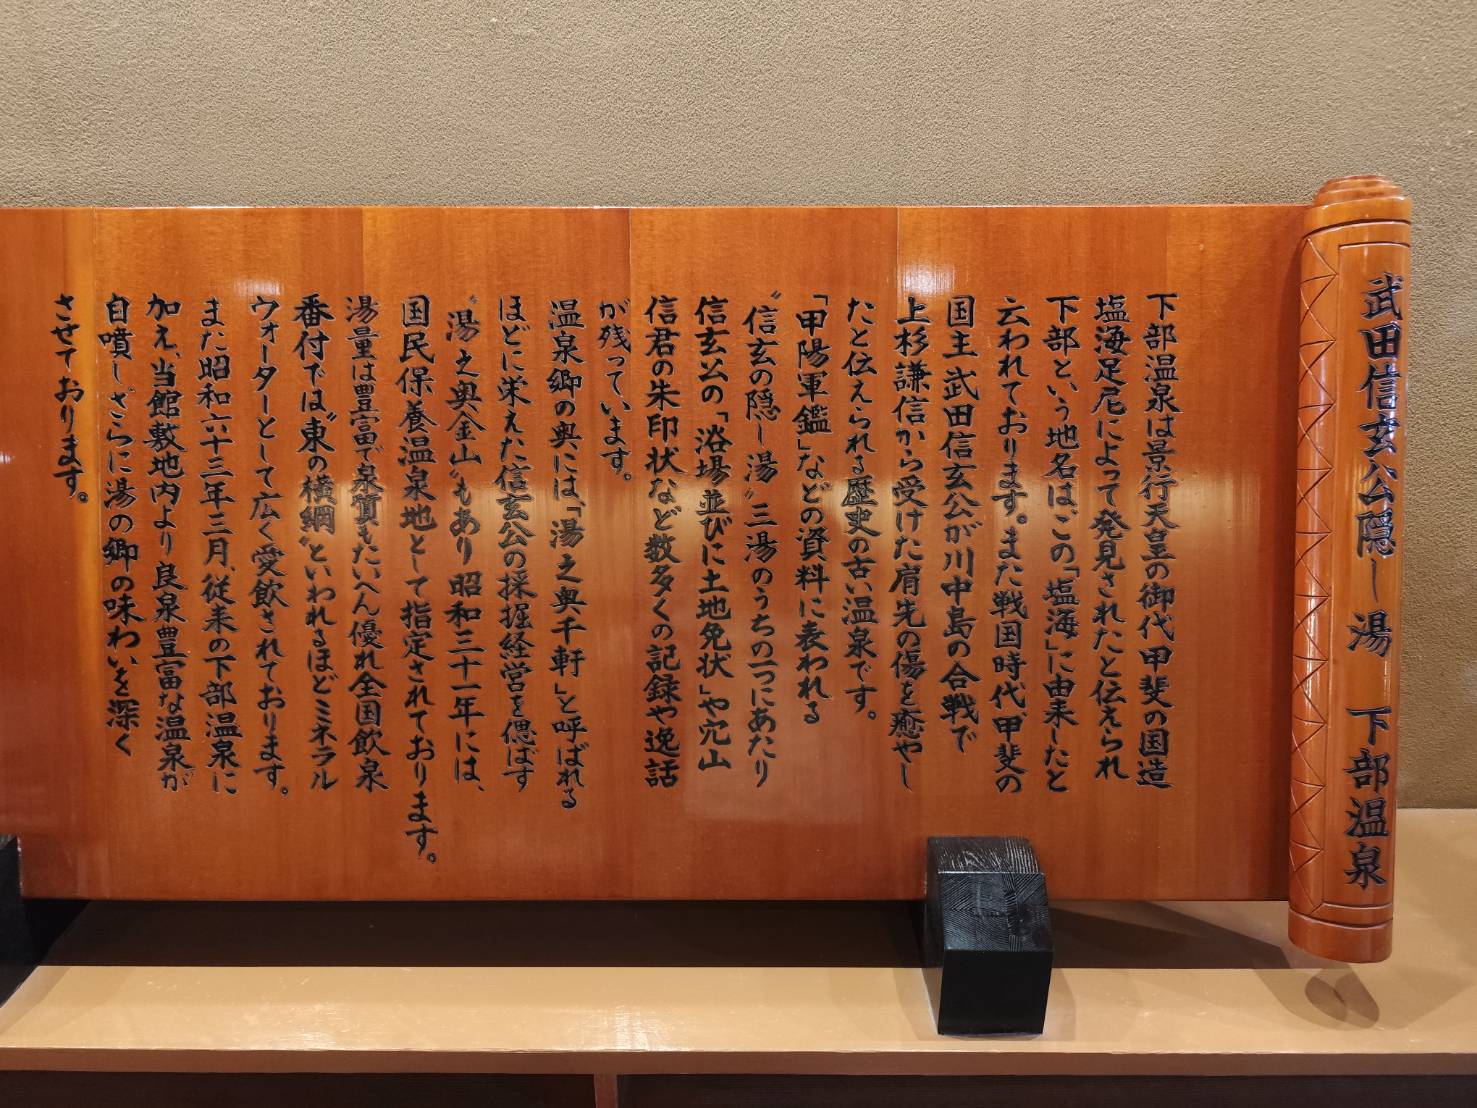 武田信玄公隠し湯 下部温泉
下部温泉は景行天皇の御代甲斐の国造
塩海足尼によって発見されたと伝えられ
下部という地名はこの「塩海」に由来したと
云われております。また戦国時代、甲斐の
国主武田信玄公が川中島の合戦で
上杉謙信から受けた肩先の傷を癒やし
たと伝えられる歴史の古い温泉です。
「甲陽軍鑑」などの資料に表われる
〝信玄の隠し湯〟三湯のうちの一つにあたり
信玄公の「浴場並びに土地免状」や穴山
信君の朱印状など数多くの記録や逸話
が残っています。
温泉郷の奥には、「湯之奥千軒」と呼ばれる
ほどに栄えた信玄公の採掘経営を偲ばす
〝湯之奥金山〟もあり昭和三十一年には、
国民保養温泉地として指定されております。
湯量は豊富で泉質もたいへん優れ全国飲泉
番付では〝東の横綱〟といわれるほどミネラル
ウォーターとして広く愛飲されております。
また昭和六十三年三月、従来の下部温泉に
加え、当館敷地内より良泉豊富な温泉が
自噴しざらに湯の郷の味わいを深く
させております。